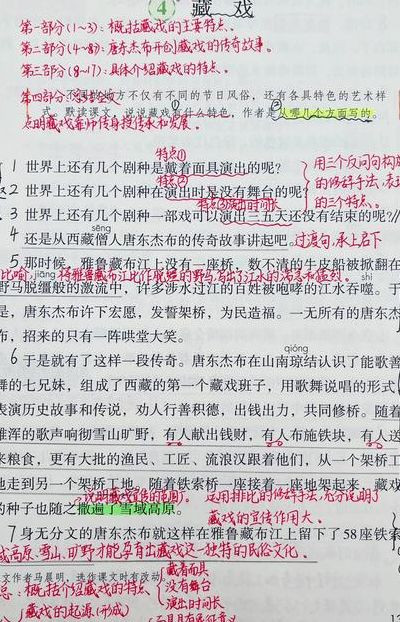 ④ 藏 戏
第一部分(1~3):概括藏戏的主要特点。
第二部分(4~8):唐东杰布开创藏戏的传奇故事。
第三部分(8~17):具体介绍藏戏的特点。
第四部分
不同的地方不仅有不同的节日风俗，还有各具特色的艺术样
式。默读课文，说说藏戏有什么特色，作者是从哪几个方面写的。
点明藏戏靠师传身授传承和发展。
特点①
1 世界上还有几个剧种是戴着面具演出的呢?
特点②
2 世界上还有几个剧种在演出时是没有舞台的呢?
特点③演出时间长
3 世界上还有几个剧种一部戏可以演出三五天还没有结束的呢?
用三个反问句构
的修辞手法,表现
的三个特点。
sēng
4 还是从西藏僧人唐东杰布的传奇故事讲起吧。过渡句,承上启下
5 那时候，雅鲁藏布江上没有一座桥，数不清的牛皮船被掀翻在
比喻,
jiāng
将雅鲁藏布江比作脱缰的野马,写出了江水的汹涌和猛烈。
shì
野马脱缰般的激流中，许多涉水过江的百姓被咆哮的江水吞噬。于
是，唐东杰布许下宏愿，发誓架桥，为民造福。一无所有的唐东杰
布，招来的只有一阵哄堂大笑。
qióng
6 于是就有了这样一段传奇。唐东杰布在山南琼结认识了能歌善
舞的七兄妹，组成了西藏的第一个藏戏班子，用歌舞说唱的形式
表演历史故事和传说，劝人行善积德，出钱出力，共同修桥。随着
雄浑的歌声响彻雪山旷野，有人献出钱财，有人布施铁块，有人送
来粮食，更有大批的渔民、工匠、流浪汉跟着他们，从一个架桥工
地走到另一个架桥工地。随着铁索桥一座接着一座地架起来，藏戏
说明藏戏宣传的范围广。 运用排比的修辞手法,充分说明了
的种子也随之撒遍了雪域高原。
藏戏的宣传作用大。
7 身无分文的唐东杰布就这样在雅鲁藏布江上留下了58座铁索
高原、雪山、旷野才能孕育出藏戏这一独特的民俗文化。
文作者马晨明，选作课文时有改动。
总:概括介绍藏戏的特点
戴着面具
没有舞台
演出时间长
藏戏的起源(形成)